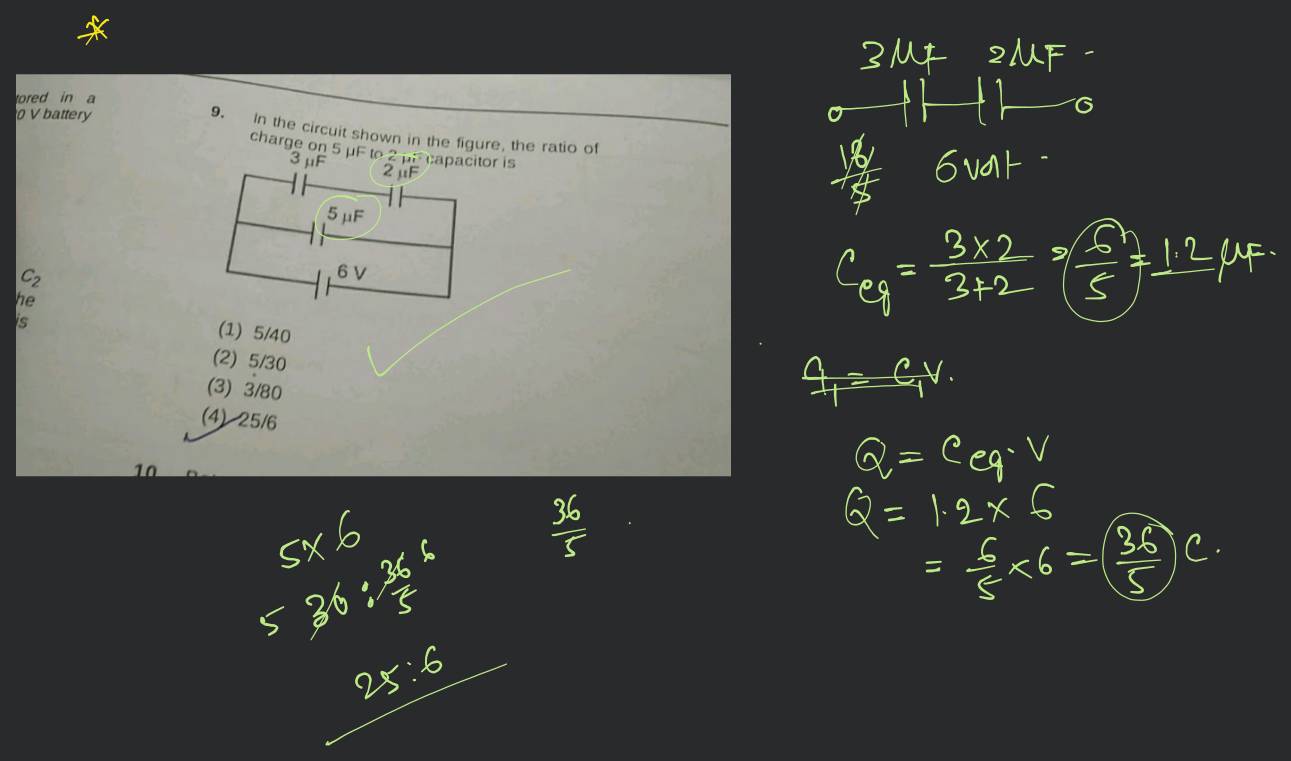 tored in a
0 V battery
9.
In the circuit shown in the figure, the ratio of
charge on 5 μF to 2 μF capacitor is
3 μF
2 μF
5 μF
6 V
C2
he
is
(1) 5/40
(2) 5/30
(3) 3/80
(4) 25/6
10
3 μF 2 μF
18/5 6 volt
Ceq = 3×2/3+2 = 6/5 = 1.2 μF.
q1 = C1V.
Q = Ceq. V
Q = 1.2 × 6
= 6/5 × 6 = 36/5 C.
36/5
5×6
5 30 : 36/5 6
25:6